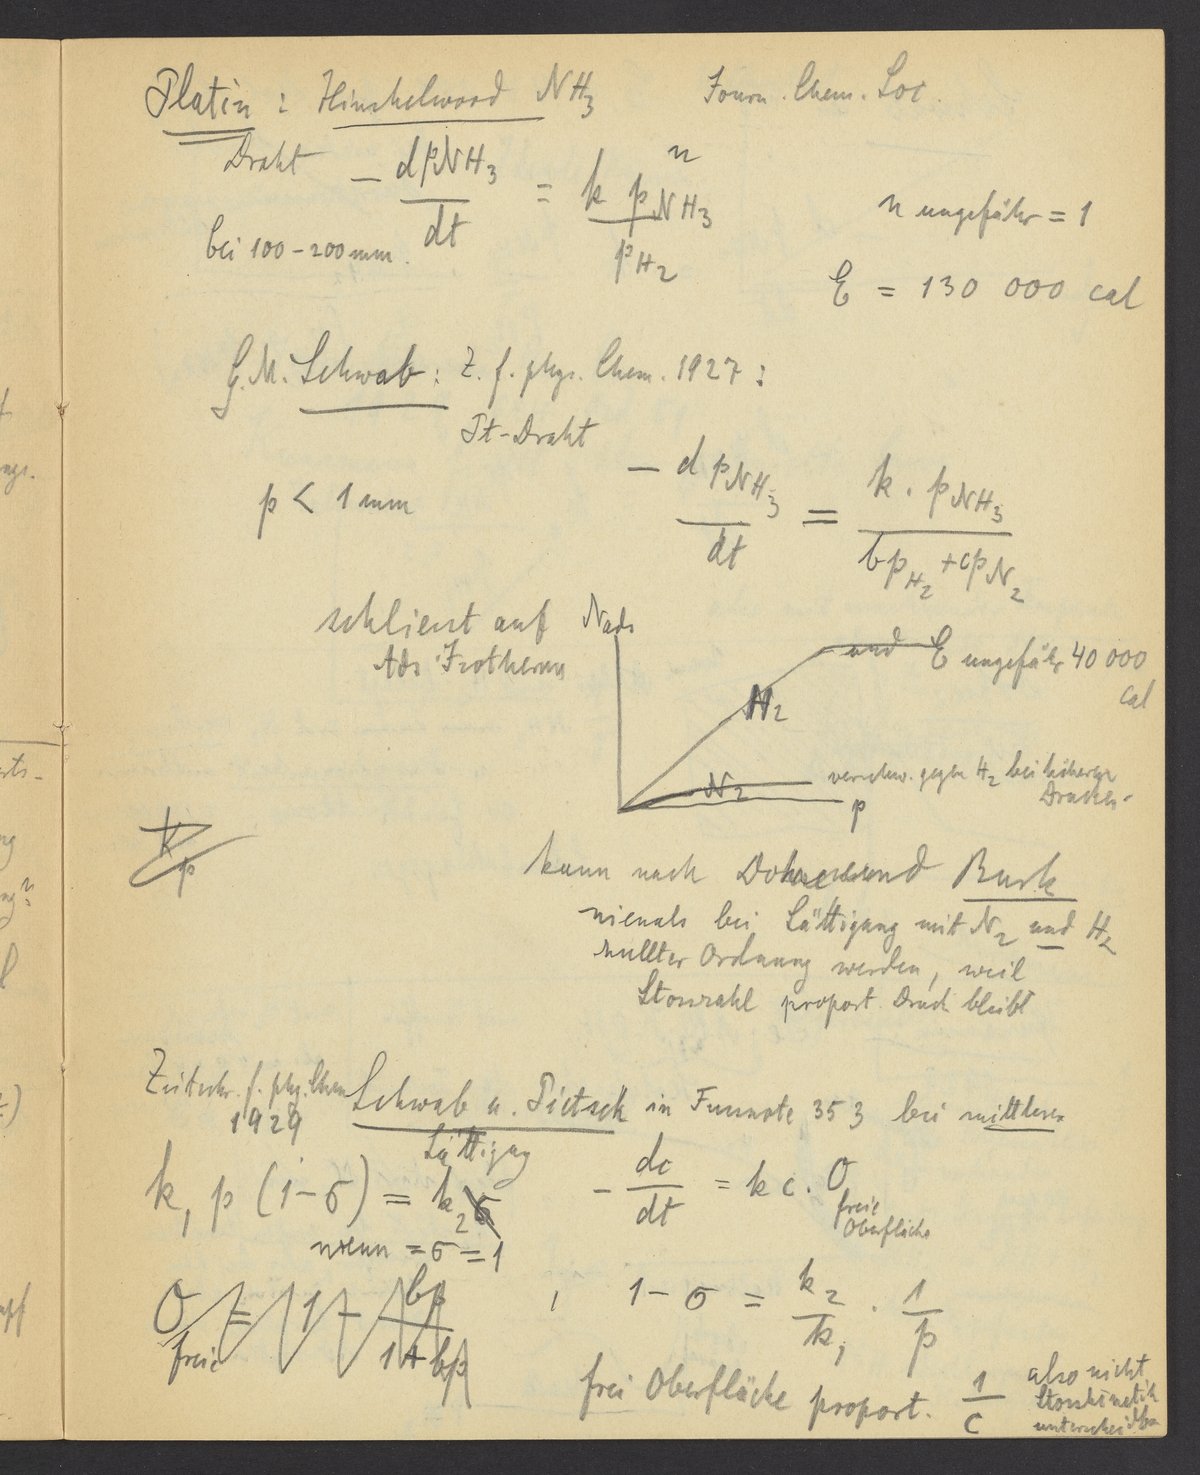 Platin : Hinshelwood NH3 Journ. Chem. Soc.
Draht
- dpNH3 / dt = k pNH3^n / pH2
n ungefähr = 1
bei 100-200 mm.
E = 130 000 cal
G.M. Schwab : Z. f. phys. Chem. 1927 :
Pt-Draht
p < 1 mm
- d pNH3 / dt = k . pNH3 / bpH2 + cpN2
schliesst auf
Ads Isotherm
Nads
und E ungefähr 40 000
cal
H2
N2
verschw. gegen H2 bei höheren
Drucken.
p
k
p
kann nach und Burk
niemals bei Sättigung mit N2 und H2
nullter Ordnung werden, weil
Stosszahl proport. Druck bleibt
Zeitschr. f. phys. Chem
1929
Schwab u. Pietsch in Fussnote 353 bei mittlerer
Sättigung
k1 p (1-σ) = k2 σ
- dc / dt = k c . O freie Oberfläche
wenn = σ = 1
O freie = 1 - bp / 1 + bp
1 - σ = k2 / k1 . 1 / p
frei Oberfläche proport. 1 / c
also nicht
Stosskinetik
unterscheidbar